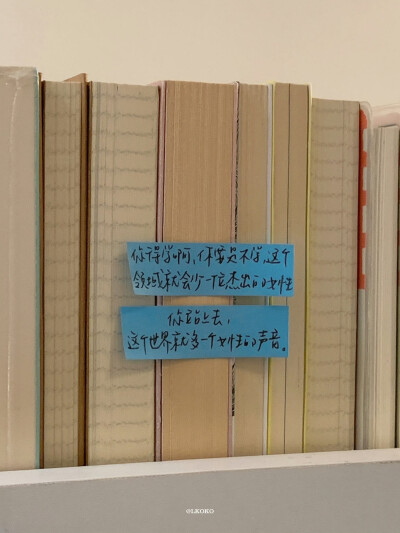 你得学啊,你要是不学,这个
领域就会少一位杰出的女性
你站上去,
这个世界就多一个女性的声音。
@LKOKO